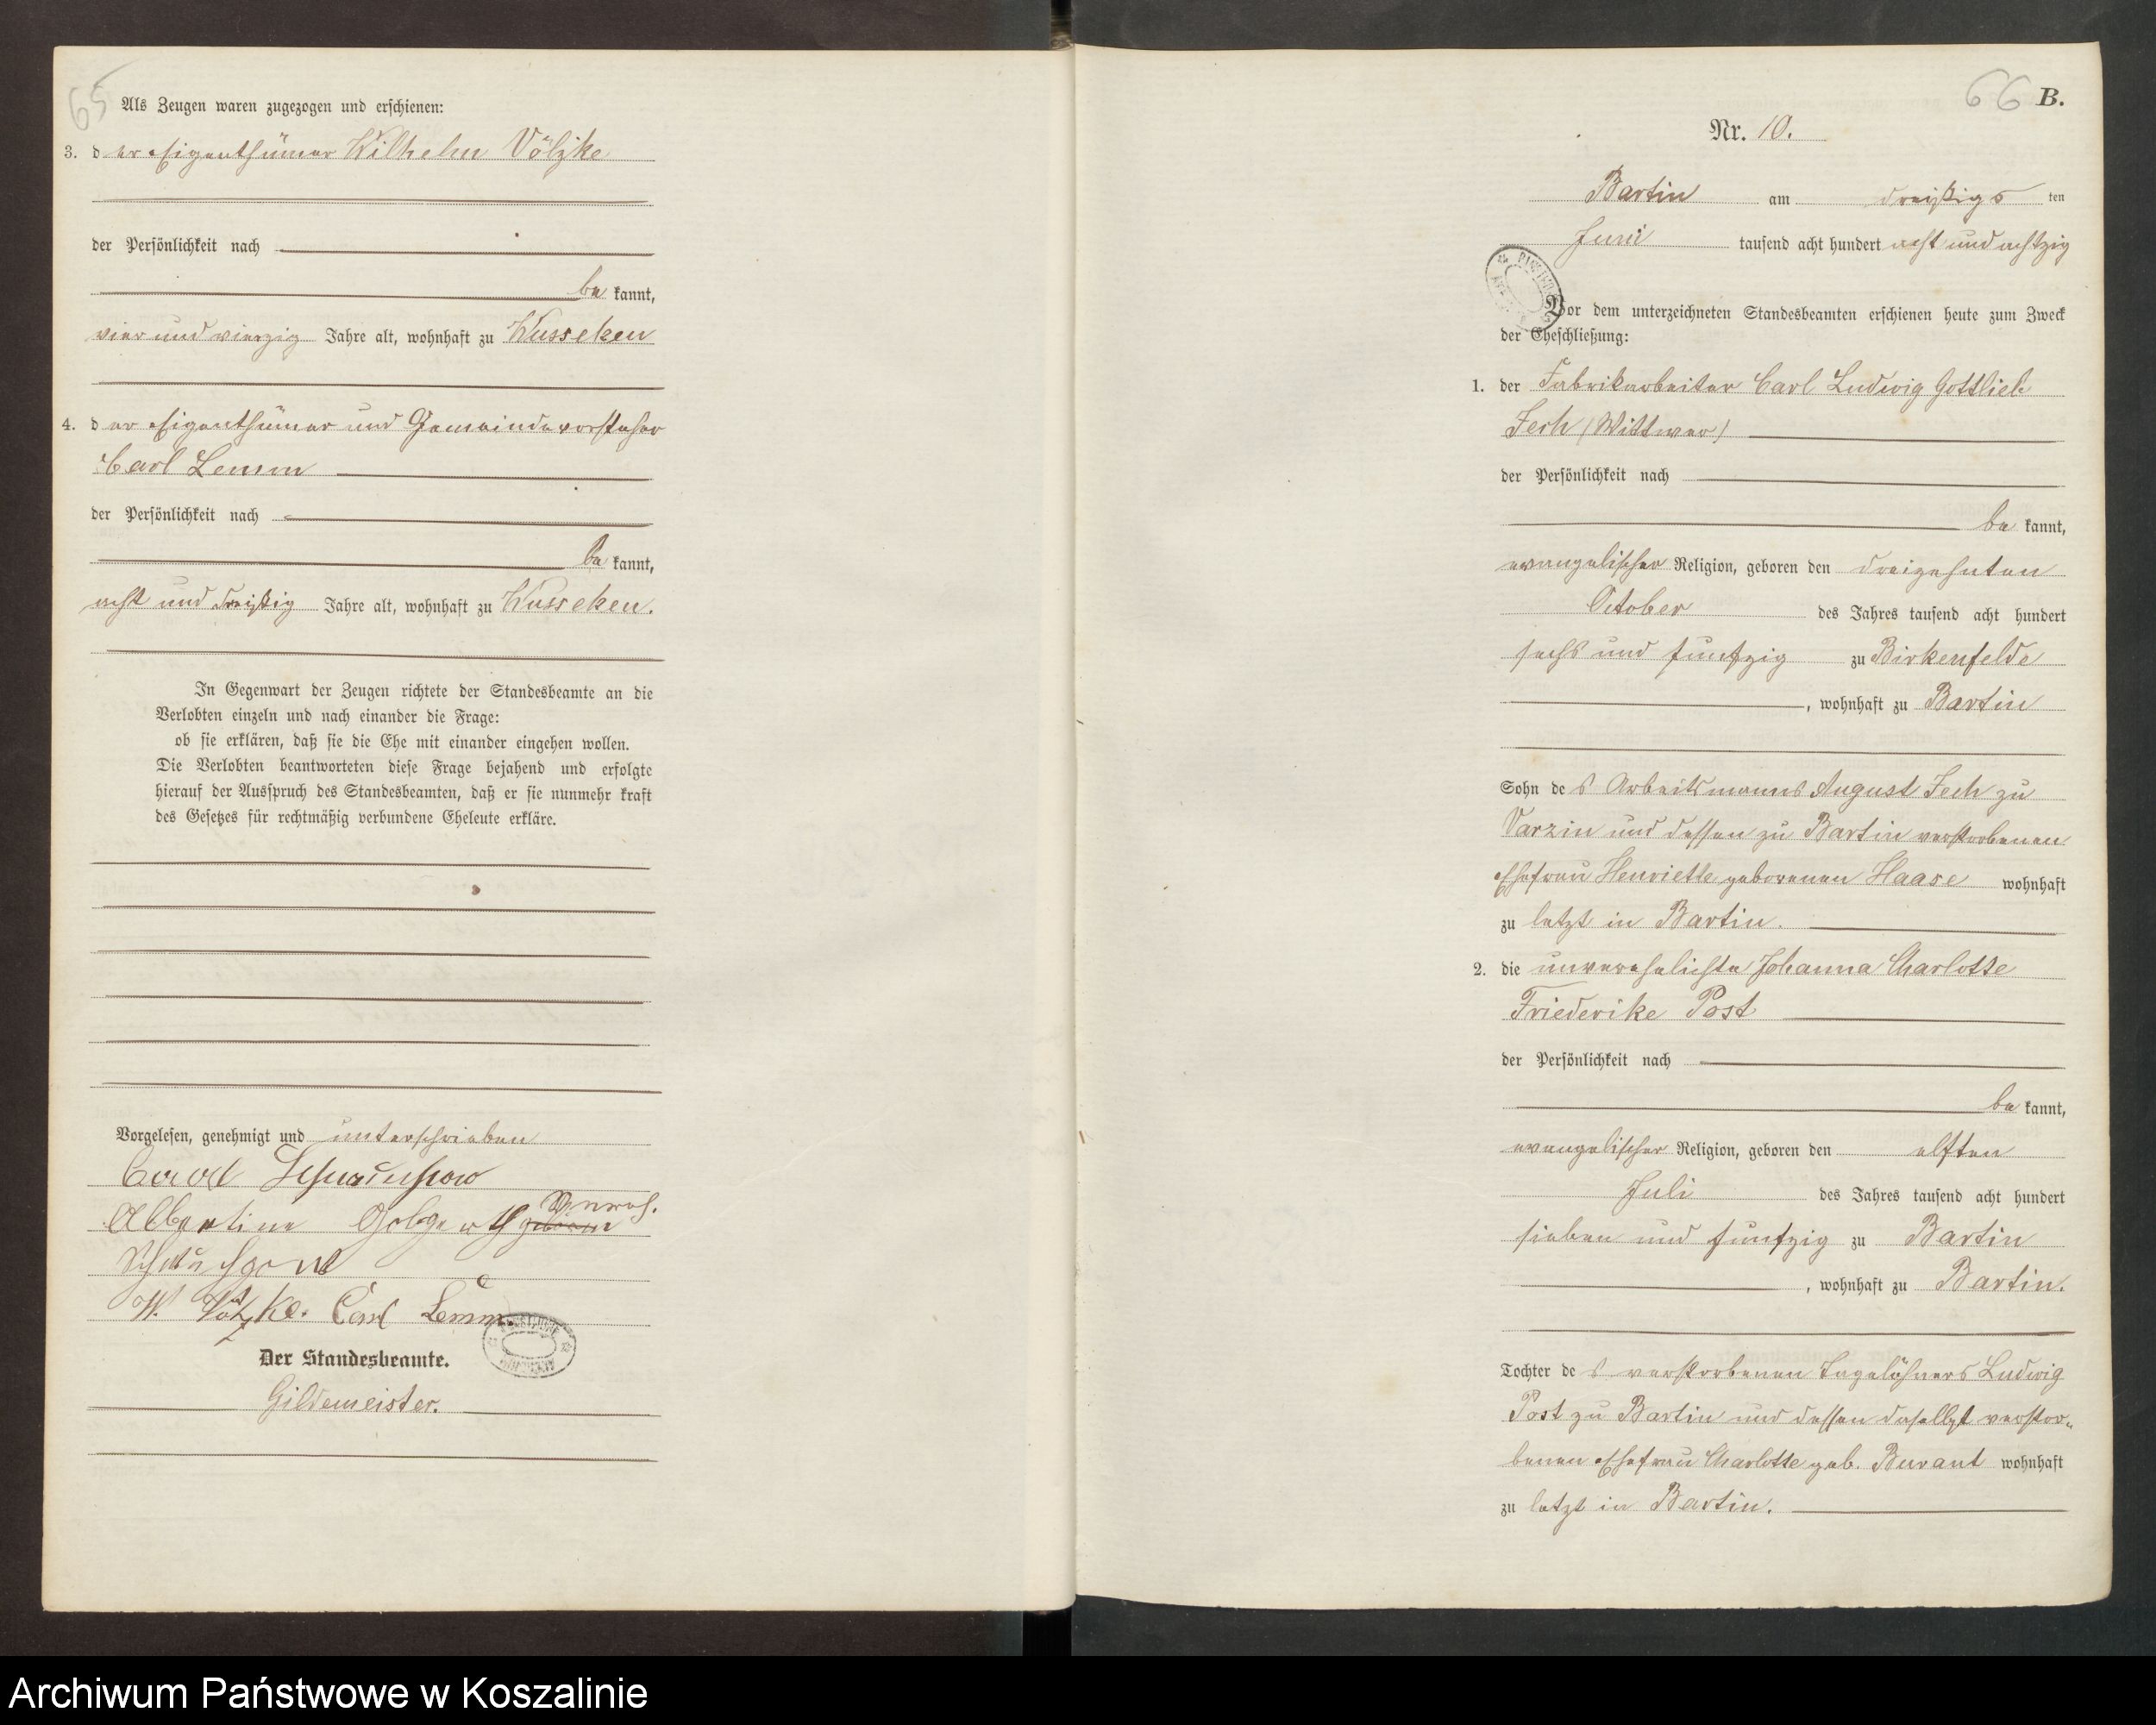 65
Als Zeugen waren zugezogen und erschienen:
3. der Eigenthümer Wilhelm Völzke
der Persönlichkeit nach
be kannt,
vier und vierzig Jahre alt, wohnhaft zu Wusseken
4. der Eigenthümer und Gemeindevorsteher
Carl Lemm
der Persönlichkeit nach
be kannt,
acht und dreißig Jahre alt, wohnhaft zu Wusseken.
In Gegenwart der Zeugen richtete der Standesbeamte an die
Verlobten einzeln und nach einander die Frage:
ob sie erklären, daß sie die Ehe mit einander eingehen wollen.
Die Verlobten beantworteten diese Frage bejahend und erfolgte
hierauf der Ausspruch des Standesbeamten, daß er sie nunmehr kraft
des Gesetzes für rechtmäßig verbundene Eheleute erkläre.
Vorgelesen, genehmigt und unterschrieben
Carl
Albertine
W. Völzke. Carl Lemm.
Der Standesbeamte.
Gildemeister.
66 B.
Nr. 10.
Bartin am dreißigs ten
Juni tausend acht hundert acht und achtzig
Vor dem unterzeichneten Standesbeamten erschienen heute zum Zweck
der Eheschließung:
1. der Fabrikarbeiter Carl Ludwig Gottlieb
Zech (Wittwer)
der Persönlichkeit nach
be kannt,
evangelischer Religion, geboren den dreizehnten
October des Jahres tausend acht hundert
sechs und funfzig zu Birkenfelde
, wohnhaft zu Bartin
Sohn des Arbeitsmanns August Zech zu
Varzin und dessen zu Bartin verstorbenen
Ehefrau Henriette geborenen Haase wohnhaft
zu letzt in Bartin.
2. die unverehelichte Johanna Charlotte
Friederike Post
der Persönlichkeit nach
be kannt,
evangelischer Religion, geboren den elften
Juli des Jahres tausend acht hundert
sieben und funfzig zu Bartin
, wohnhaft zu Bartin.
Tochter des verstorbenen Tagelöhners Ludwig
Post zu Bartin und dessen daselbst verstor-
benen Ehefrau Charlotte geb. Burant wohnhaft
zu letzt in Bartin.
Archiwum Państwowe w Koszalinie